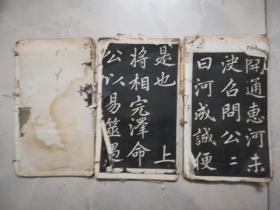 開通惠河未
決召問公二
曰河成誠便
是也　　上
將相完澤命
公以易筮遇